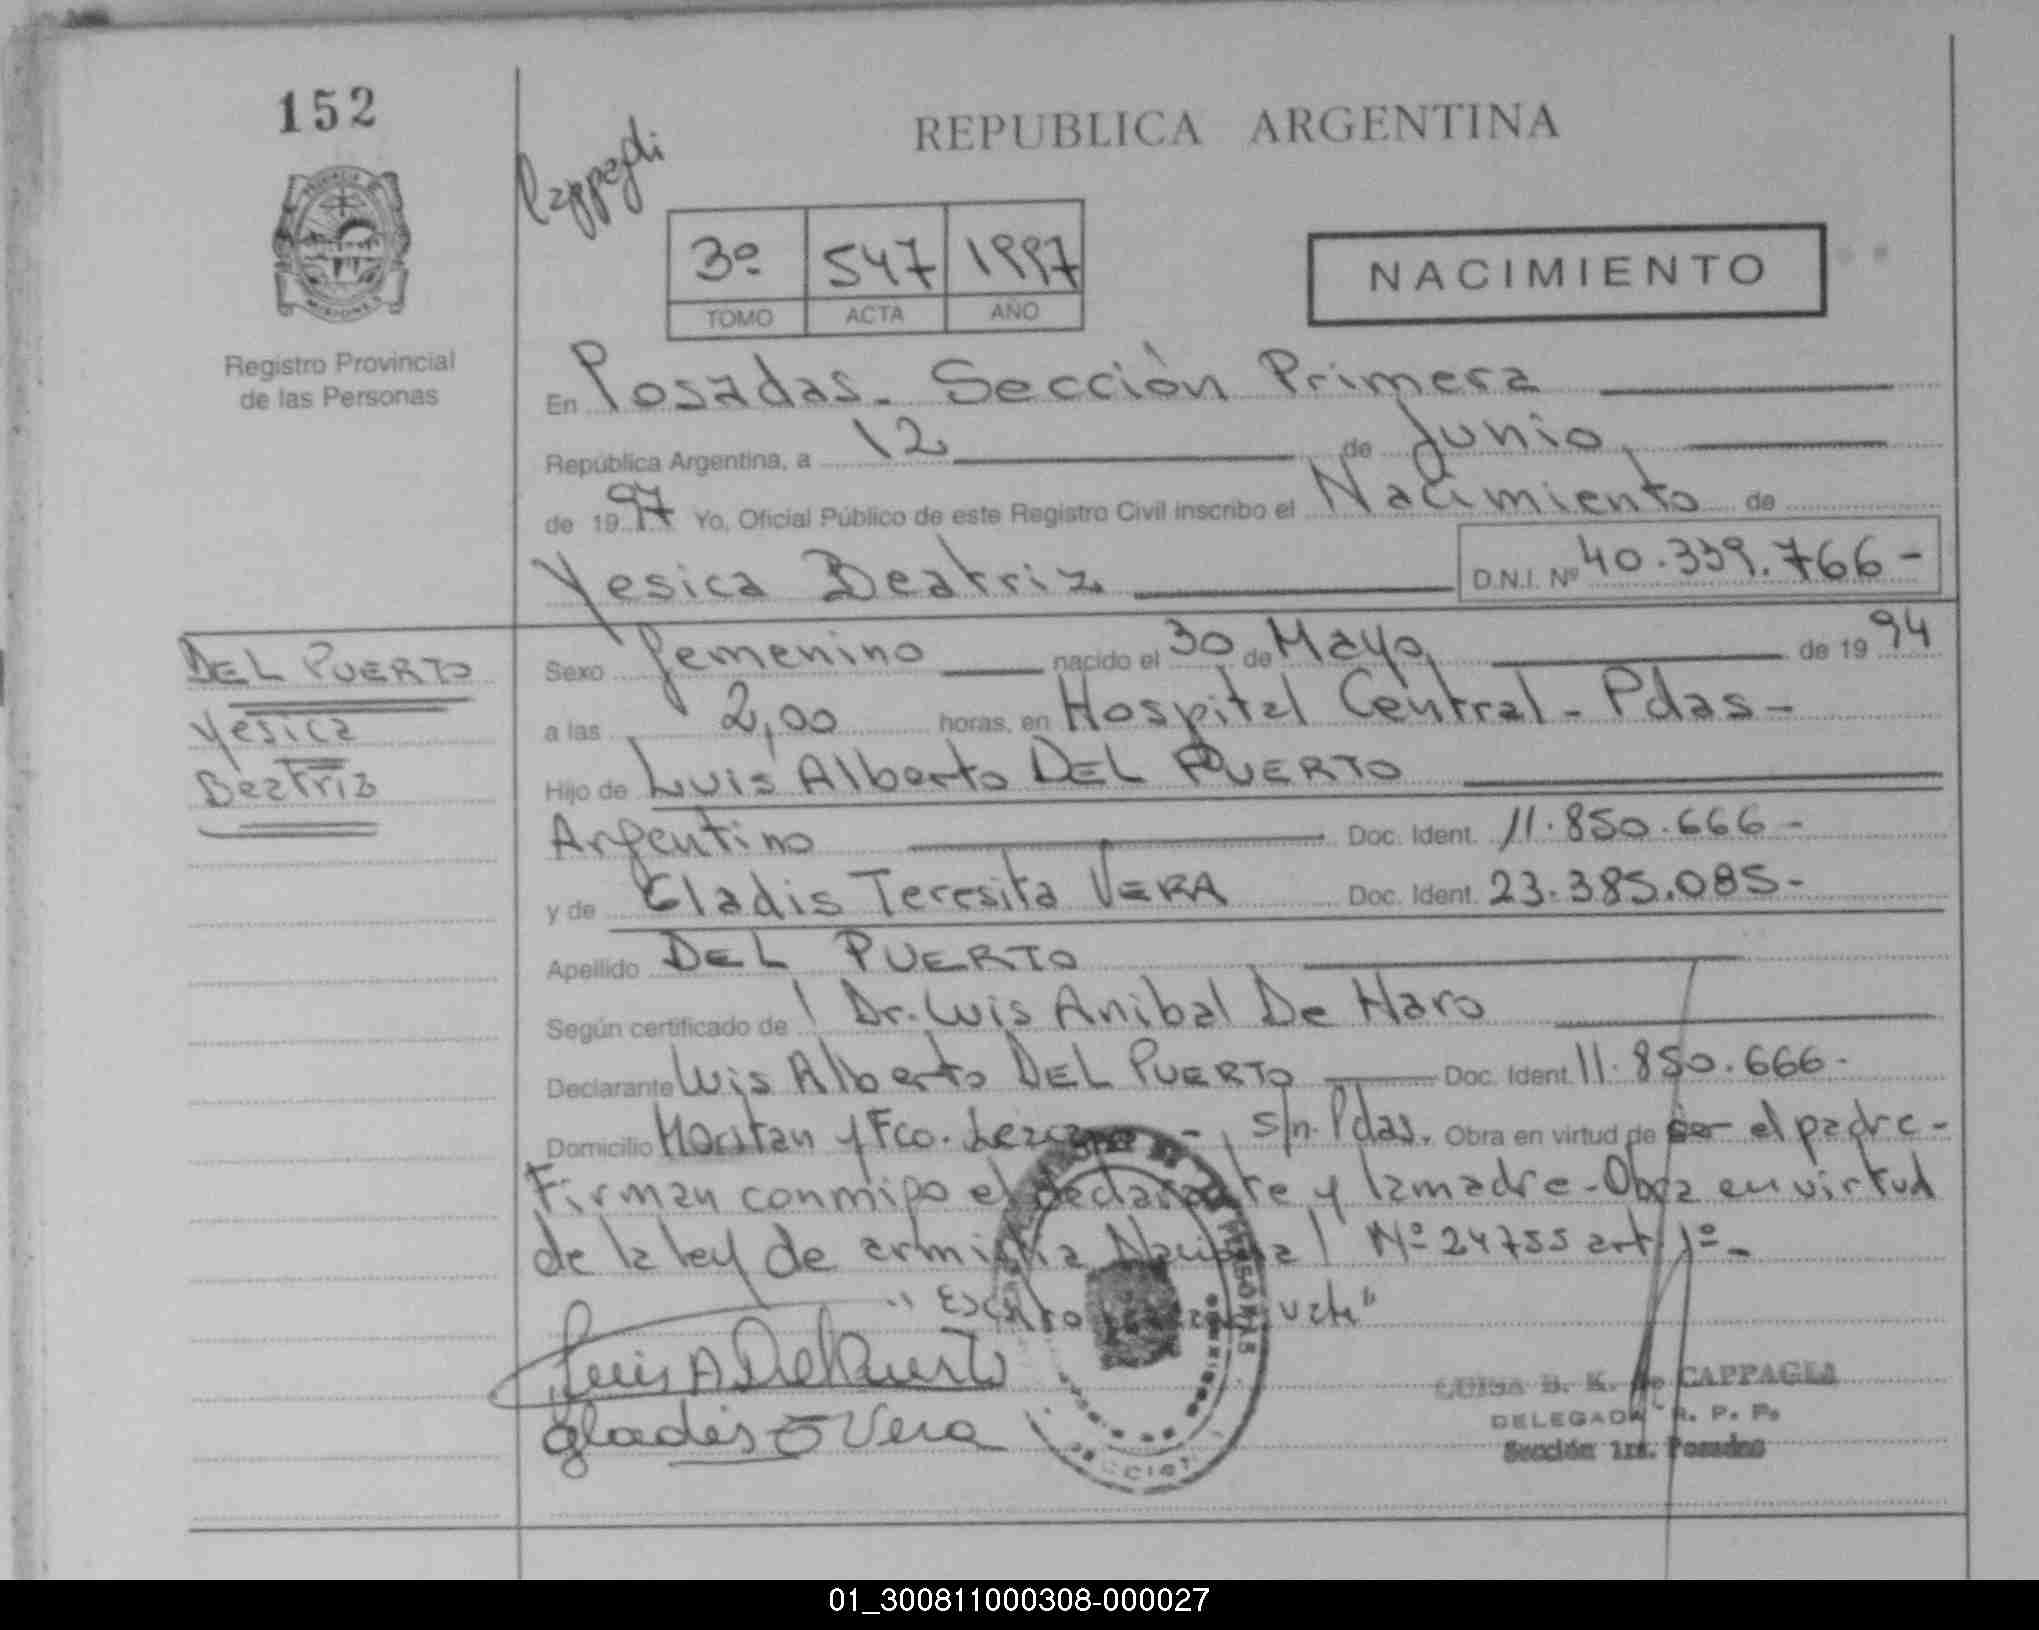 152
REPUBLICA ARGENTINA
3º 547 1997
TOMO ACTA AÑO
NACIMIENTO
Registro Provincial
de las Personas
En Posadas. Sección Primera
República Argentina, a 12 de Junio
de 1997 Yo, Oficial Público de este Registro Civil inscribo el Nacimiento de
Yesica Beatriz D.N.I. Nº 40.339.766-
DEL PUERTO
Yesica
Beatriz
Sexo femenino nacido el 30 de Mayo de 1994
a las 2,00 horas, en Hospital Central - Pdas -
Hijo de Luis Alberto DEL PUERTO
Argentino Doc. Ident. 11.850.666-
y de Gladis Teresita VERA Doc. Ident. 23.385.085-
Apellido DEL PUERTO
Según certificado de Dr. Luis Anibal De Haro
Declarante Luis Alberto DEL PUERTO Doc. Ident. 11.850.666-
Domicilio y Fco. s/n. Pdas. Obra en virtud de ser el padre-
Firman conmigo el declarante y la madre - Obra en virtud
de la ley de Nacional Nº 24755 art. 1º-
Luis A Del Puerto
Gladis T Vera
LUISA B. K. de CAPPAGLI
DELEGADA R. P. P.
Sección 1ra. Posadas
01_300811000308-000027